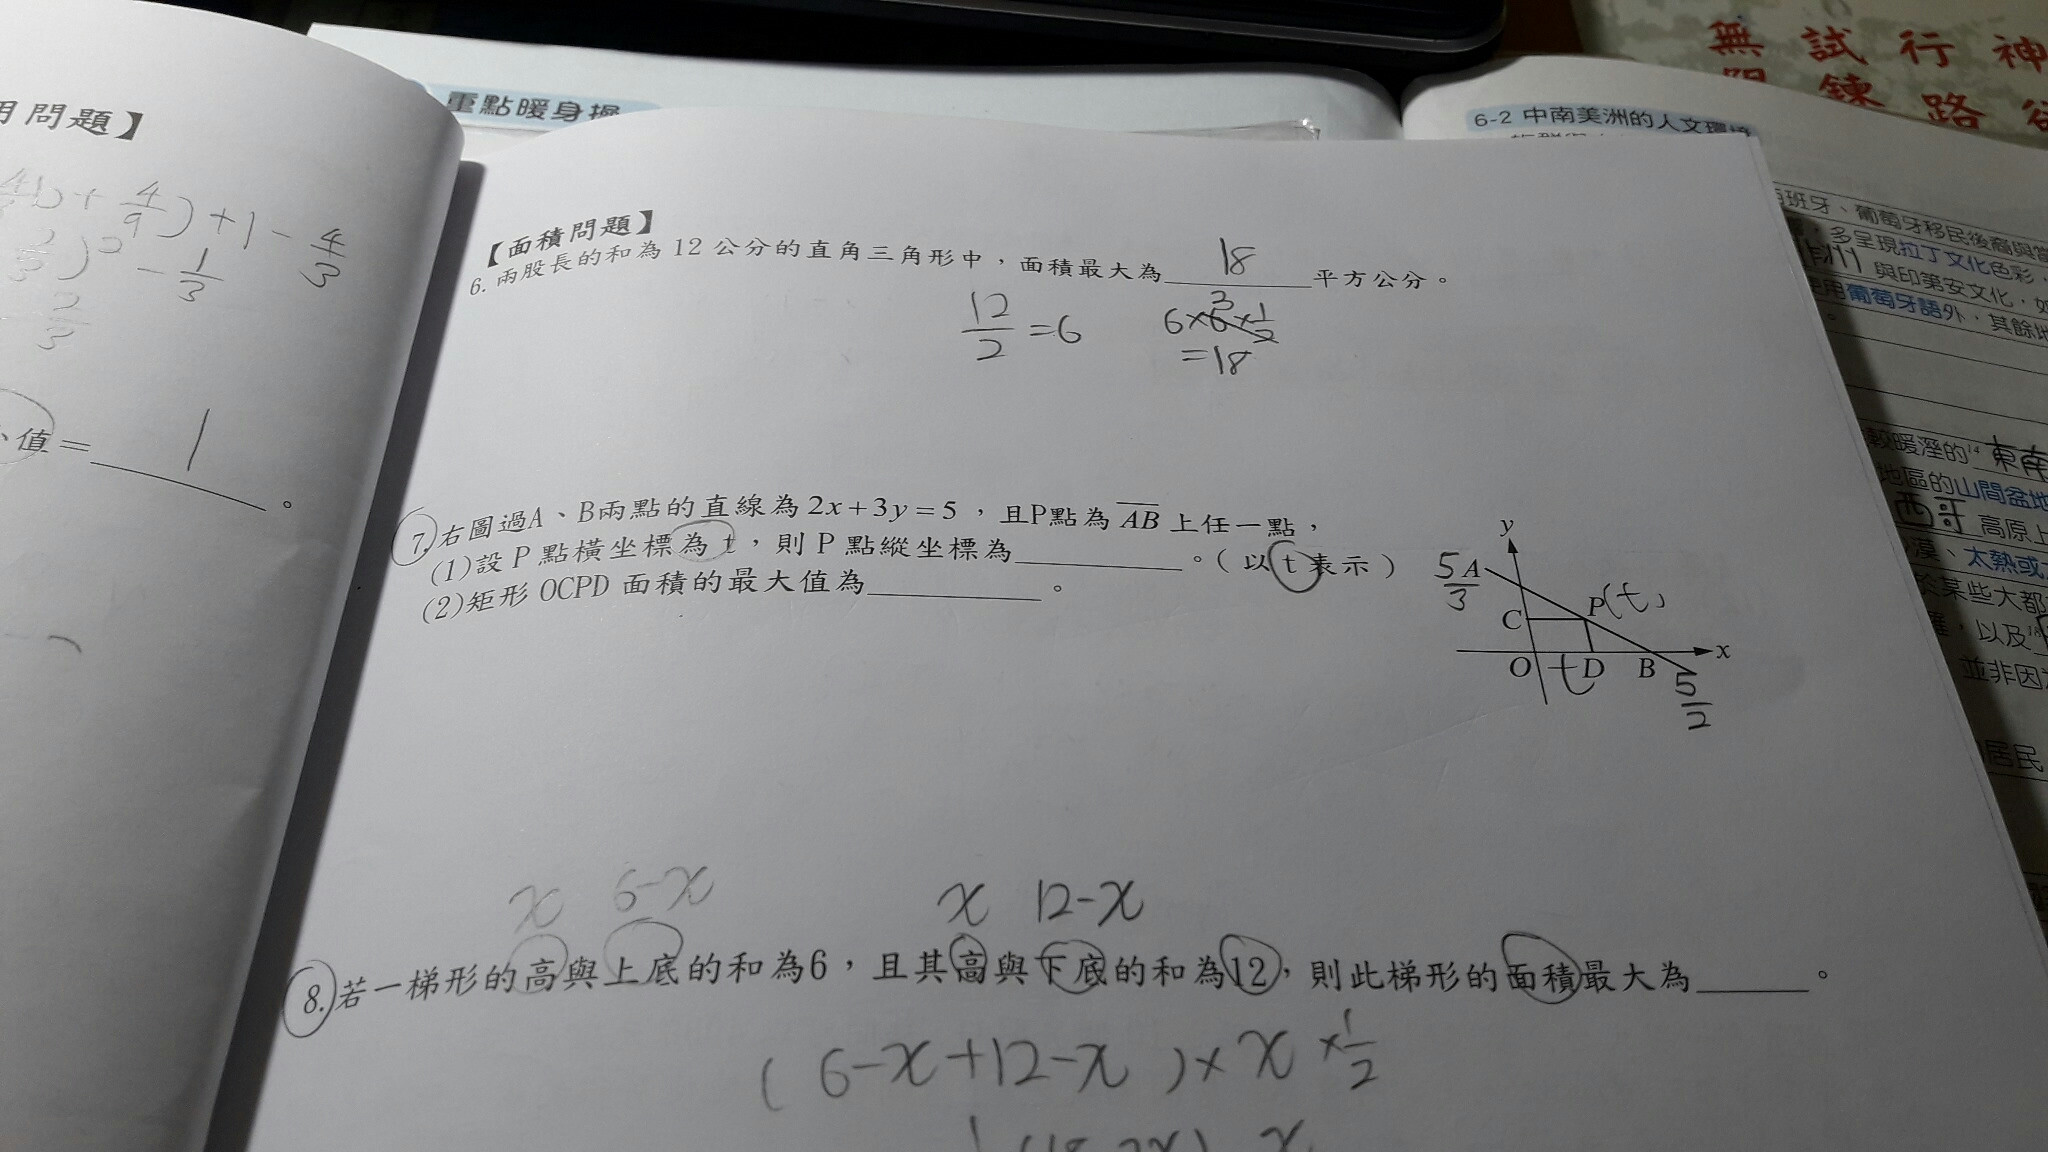 重點暖身操
6-2 中南美洲的人文環境
無 試 行 神
鍊 路
用問題】
)+1-4/3
)²-1/3
2/3
值= 1 。
【面積問題】
6. 兩股長的和為 12 公分的直角三角形中，面積最大為 18 平方公分。
12/2 =6
6×6×1/2
3
=18
7. 右圖過A、B兩點的直線為 2x+3y=5，且P點為 AB 上任一點，
(1)設 P 點橫坐標為 t，則 P 點縱坐標為______。( 以 t 表示 )
(2)矩形 OCPD 面積的最大值為______。
y
5/3 A
P(t,)
C
O t D B x
5/2
x 6-x x 12-x
8. 若一梯形的高與上底的和為6，且其高與下底的和為12，則此梯形的面積最大為______。
( 6-x+12-x )×x×1/2
班牙、葡萄牙移民後裔與當
多呈現拉丁文化色彩，
與印第安文化，如
用葡萄牙語外，其餘地
較暖溼的14 東南
地區的山間盆地
西哥 高原上
漠、太熱或
於某些大都
，以及
並非因
居民